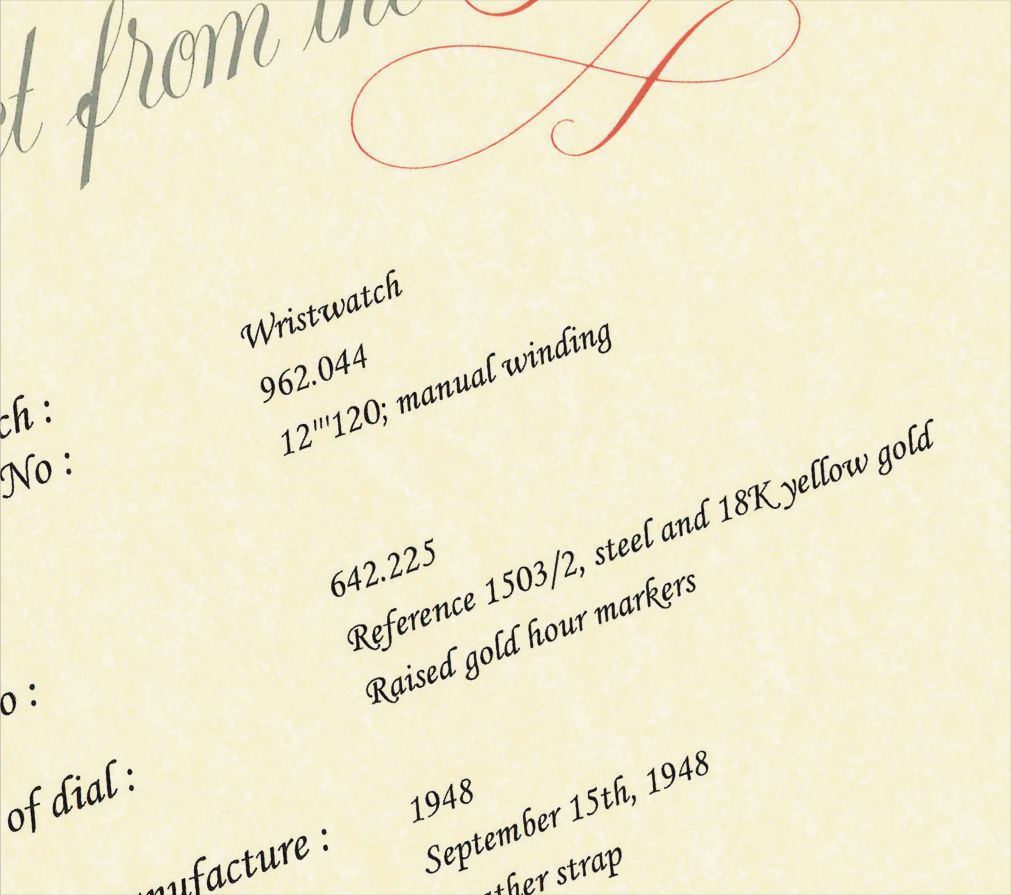 from the
Wristwatch
ch : 962.044
No : 12'''120; manual winding
642.225
Reference 1503/2, steel and 18K yellow gold
o : Raised gold hour markers
of dial : 1948
nufacture : September 15th, 1948
strap